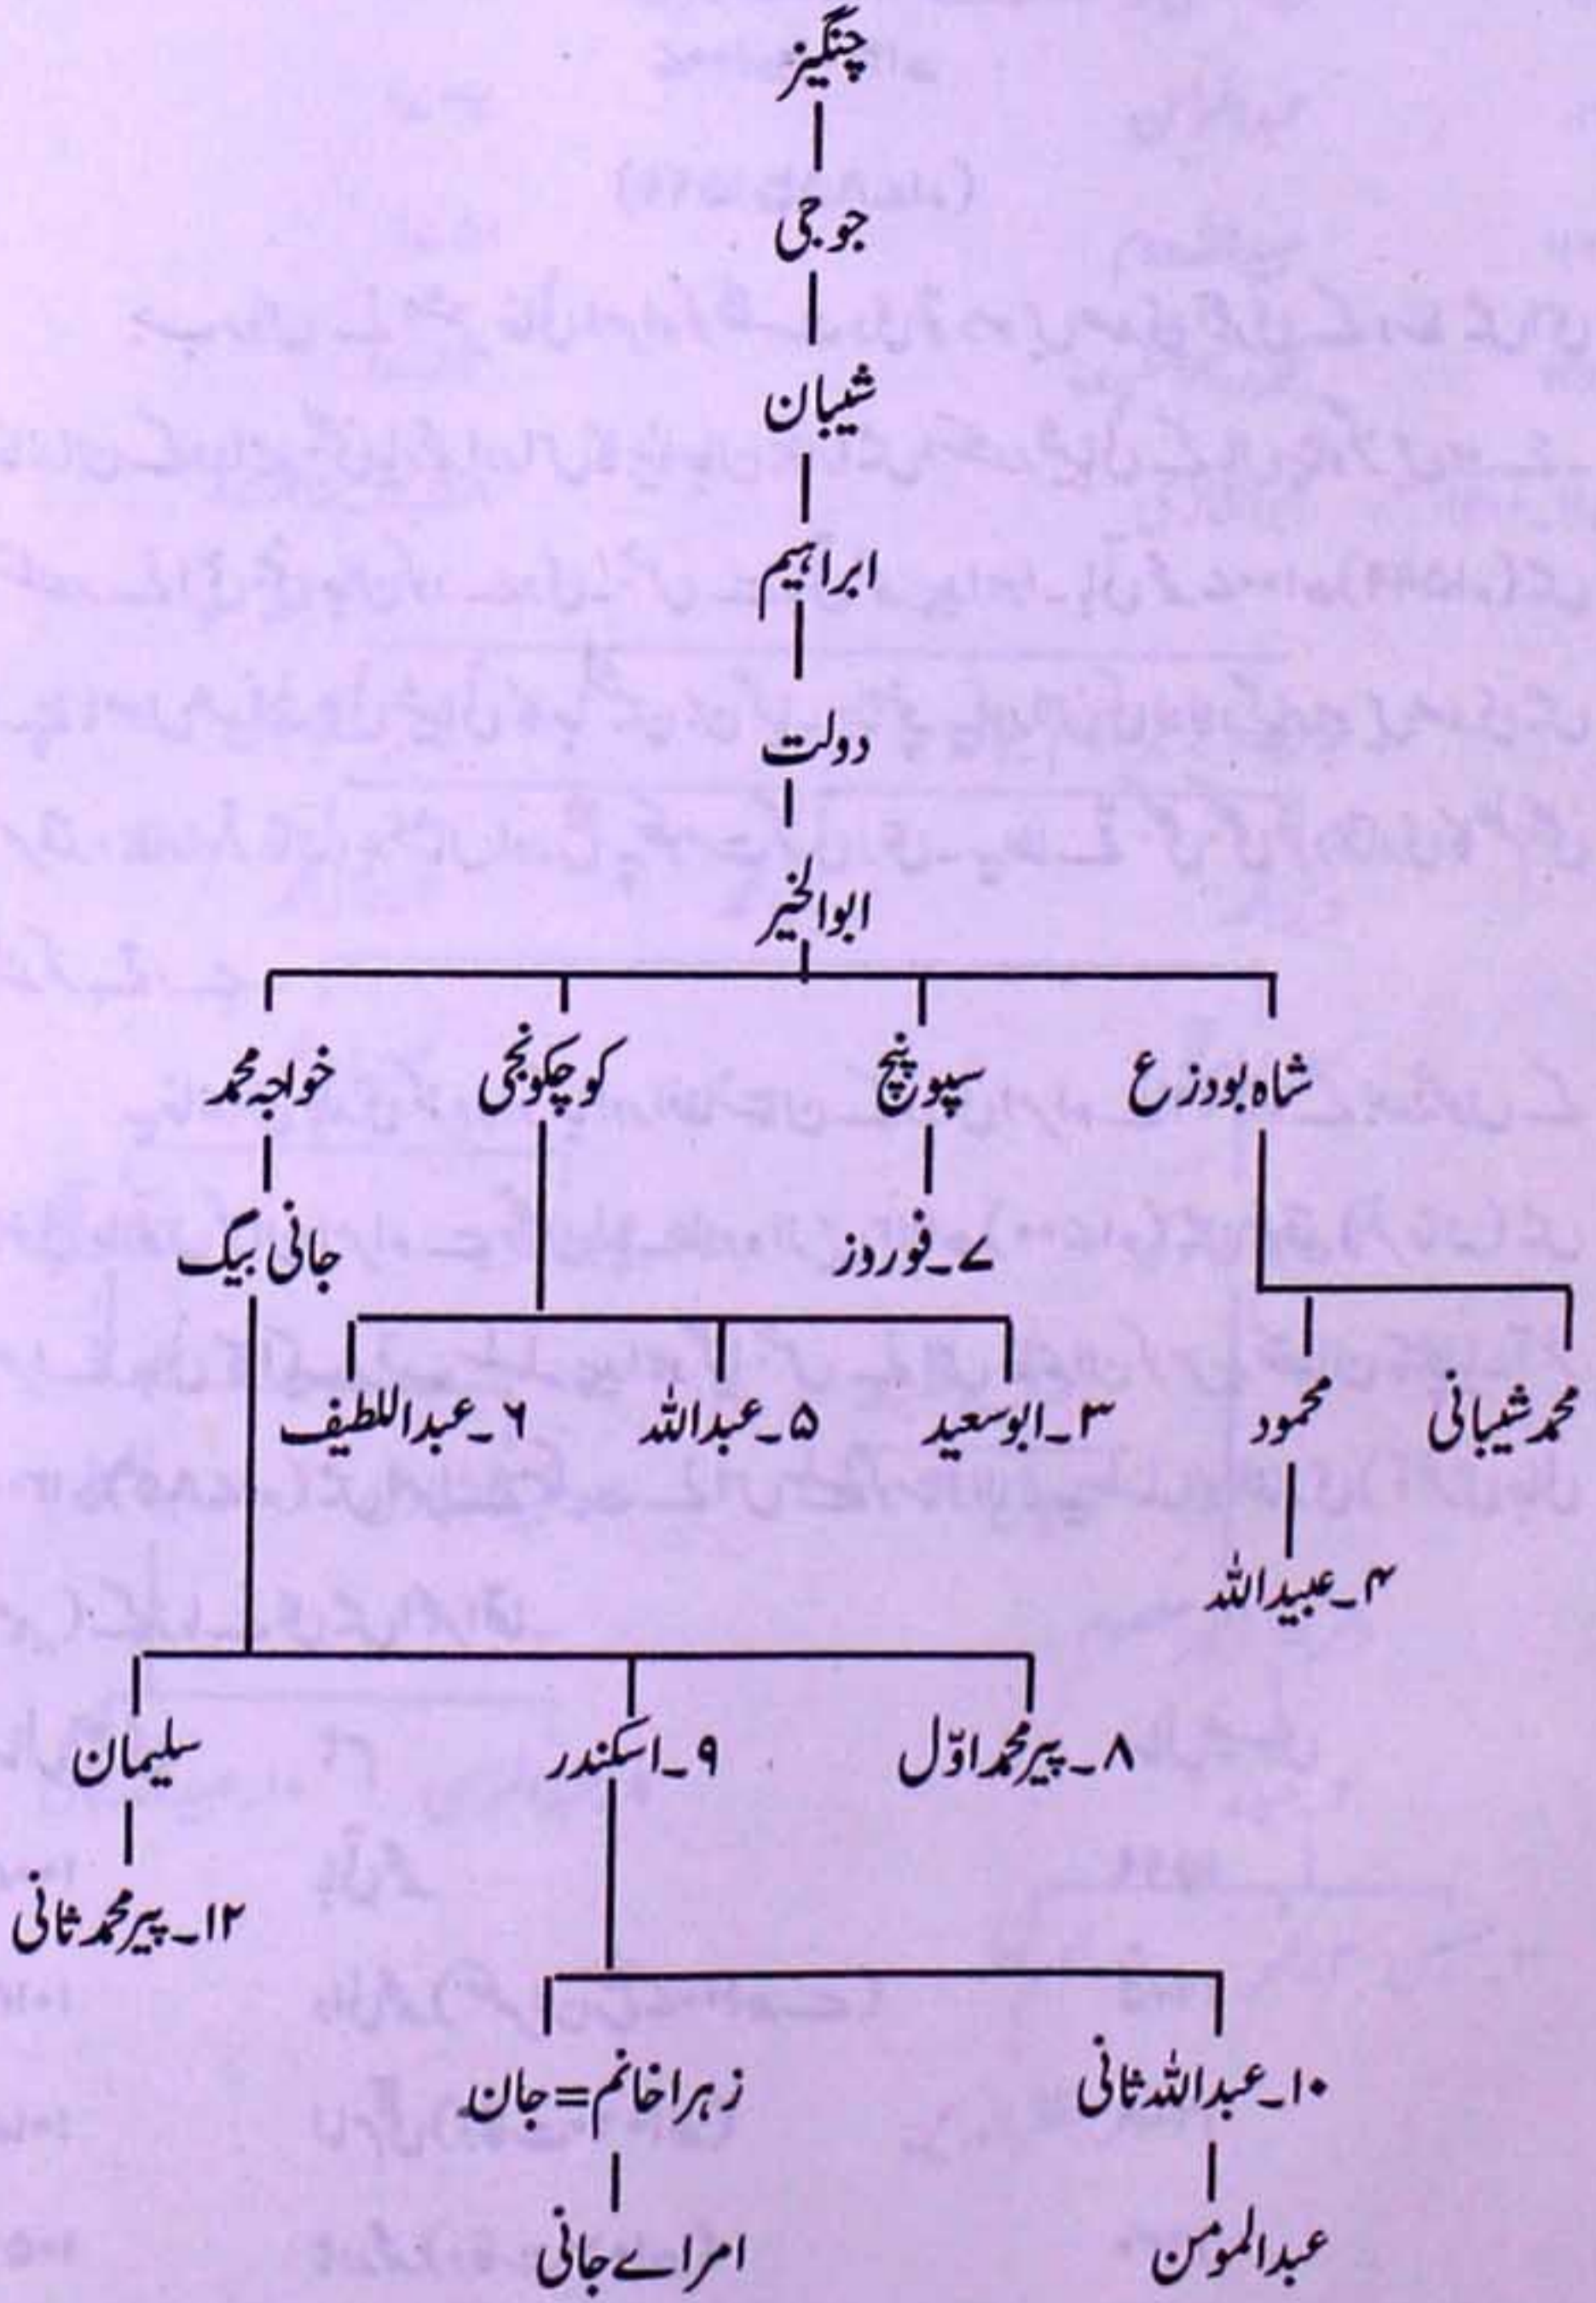 چنگیز
جوجی
شیبان
ابراہیم
دولت
ابوالخیر
شاہ بودزع سپونپچ کوچکونجی خواجہ محمد
۷۔فوردز جانی بیگ
محمد شیبانی محمود ۳۔ابوسعید ۵۔عبداللہ ۶۔عبداللطیف
۴۔عبیداللہ
۸۔پیرمحمداوّل ۹۔اسکندر سلیمان
۱۲۔پیرمحمدثانی
۱۰۔عبداللہ ثانی زہراخانم=جان
عبدالمومن امراے جانی